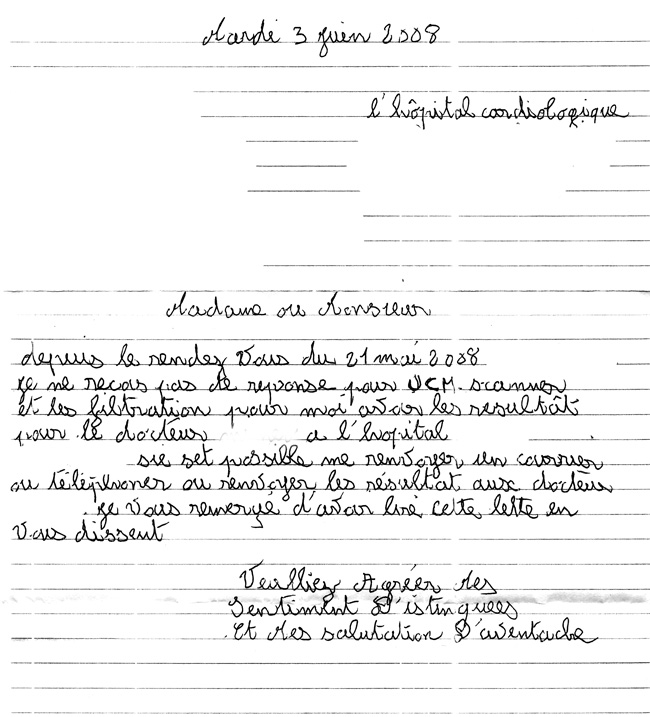 Mardi 3 juin 2008
l'hôpital cardiologique
Madame ou Monsieur
depuis le rendez Vous du 21 mai 2008
je ne recas pas de reponse pour UCM. scanner
et les filtration pour moi avoir les resultât
pour le docteur a l'hopital
sie set possible me renvoyer un courrier
ou téléphoner ou renvoyer les résultat aux docteur
je vous remerçie d'avoir liré cette lette en
Vous dissent
Veulliez Agréer Mes
Sentiment D'istinguees
Et Mes salutation D'aventache